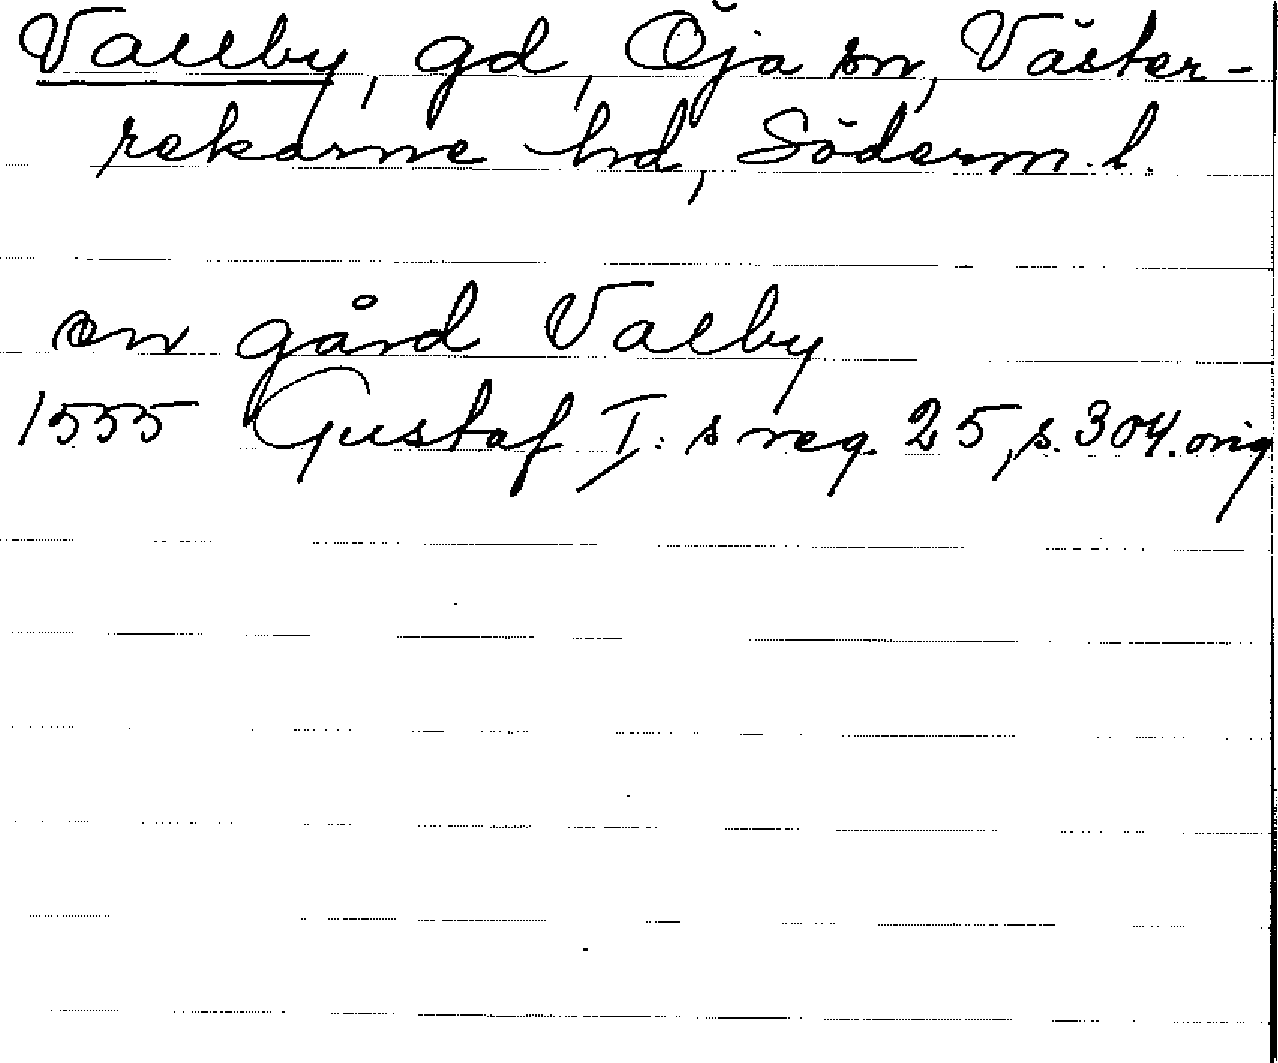 Vallby, gd, Öja sn, Väster-
rekarne hd, Söderm. l.
en gård Valby
1555 Gustaf I:s reg. 25, s. 304. orig